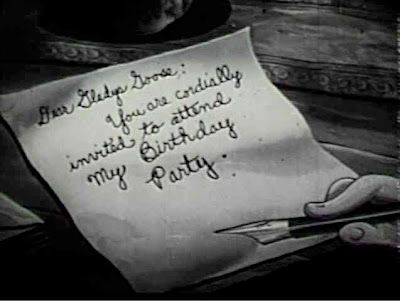 Dear Gladys Goose:
You are cordially
invited to attend
my Birthday
Party.